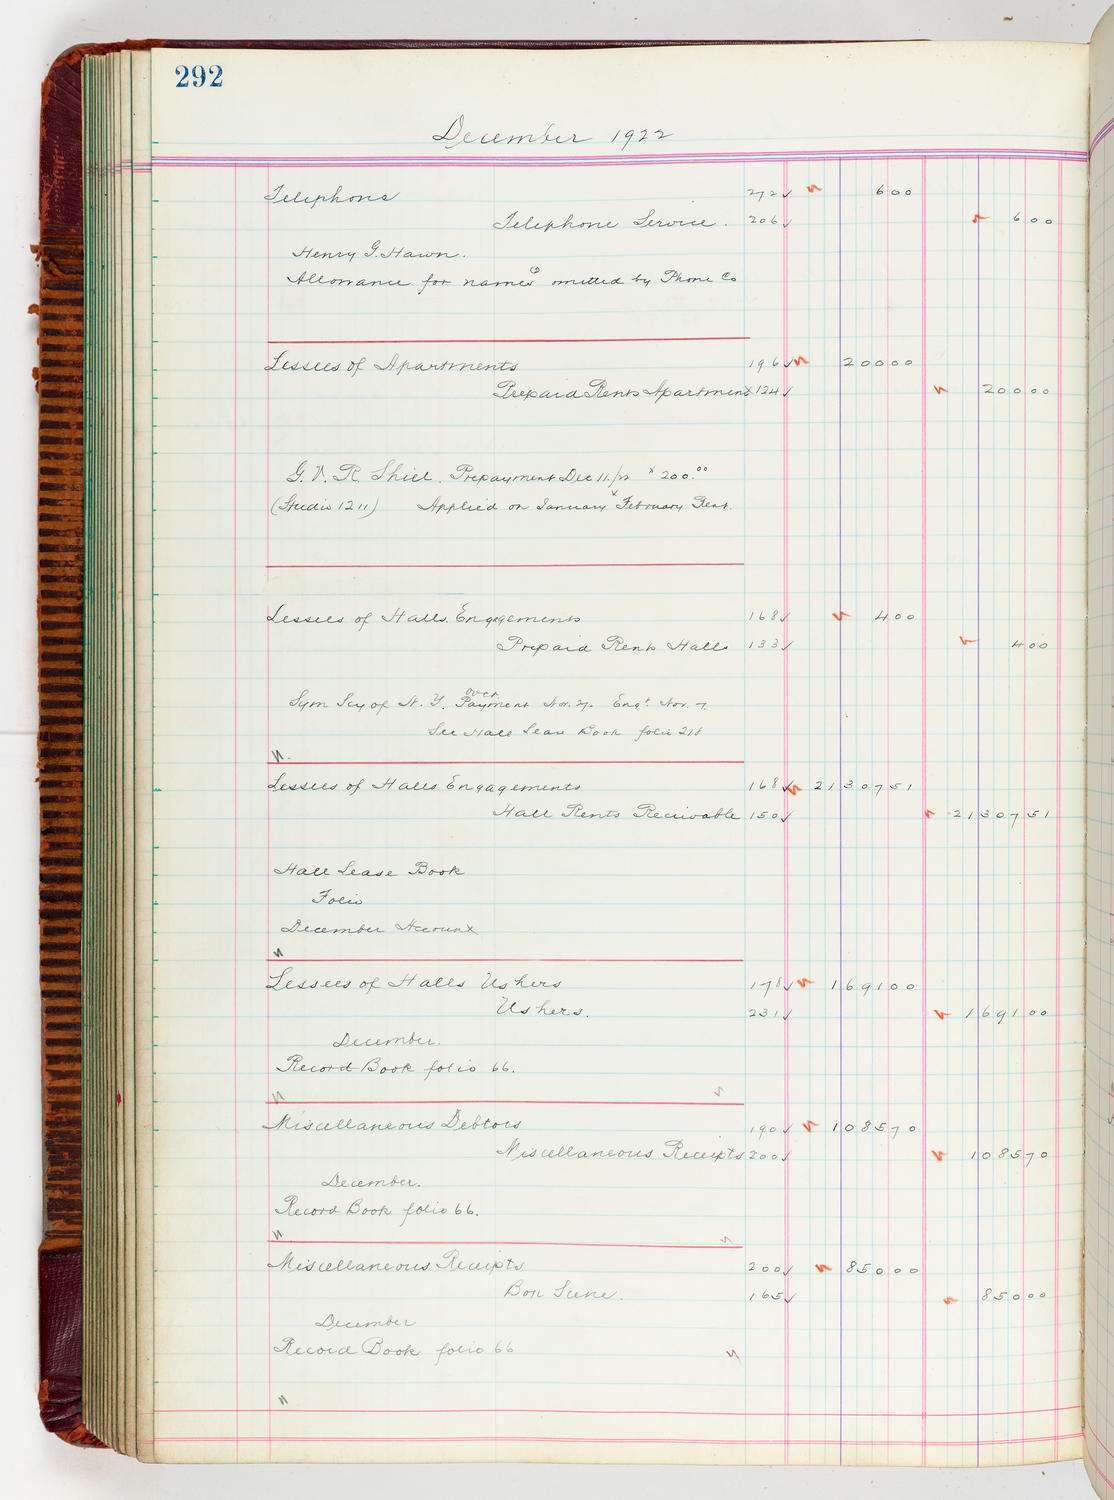 292
December 1922
Telephone 272 ✓ 600
Telephone Service. 206 ✓ 600
Henry G. Hawn.
Allowance for names omitted by Phone Co
Lessees of Apartments 196 ✓ 20000
Prepaid Rents Apartments 124 ✓ 20000
G. V. R. Shiel. Prepayment Dec 11. 200.00
(Studio 1211) Applied on January & February Rent.
Lessees of Halls Engagements 168 ✓ 400
Prepaid Rents Halls 133 ✓ 400
over
Sym Scy of N. Y. Payment Nov. 27. Engt. Nov. 7
See Hall Lease Book folio 218
Lessees of Halls Engagements 168 ✓ 2130751
Hall Rents Receivable 150 ✓ 2130751
Hall Lease Book
Folio
December Account
Lessees of Halls Ushers 178 ✓ 169100
Ushers. 231 ✓ 169100
December.
Record Book folio 66.
Miscellaneous Debtors 190 ✓ 108570
Miscellaneous Receipts 200 ✓ 108570
December.
Record Book folio 66.
Miscellaneous Receipts 200 ✓ 85000
Bon Scene. 165 ✓ 85000
December
Record Book folio 66